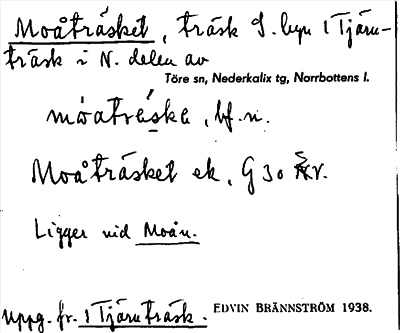 Moåträsket, träsk S. byn i Tjäru-
träsk i N. delen av
Töre sn, Nederkalix tg, Norrbottens l.
mòaträ̀ska, bf. n.
Moåträsket ek. G 30 Kr.
Ligger vid Moån.
Uppg. fr. i Tjäruträsk. EDVIN BRÄNNSTRÖM 1938.